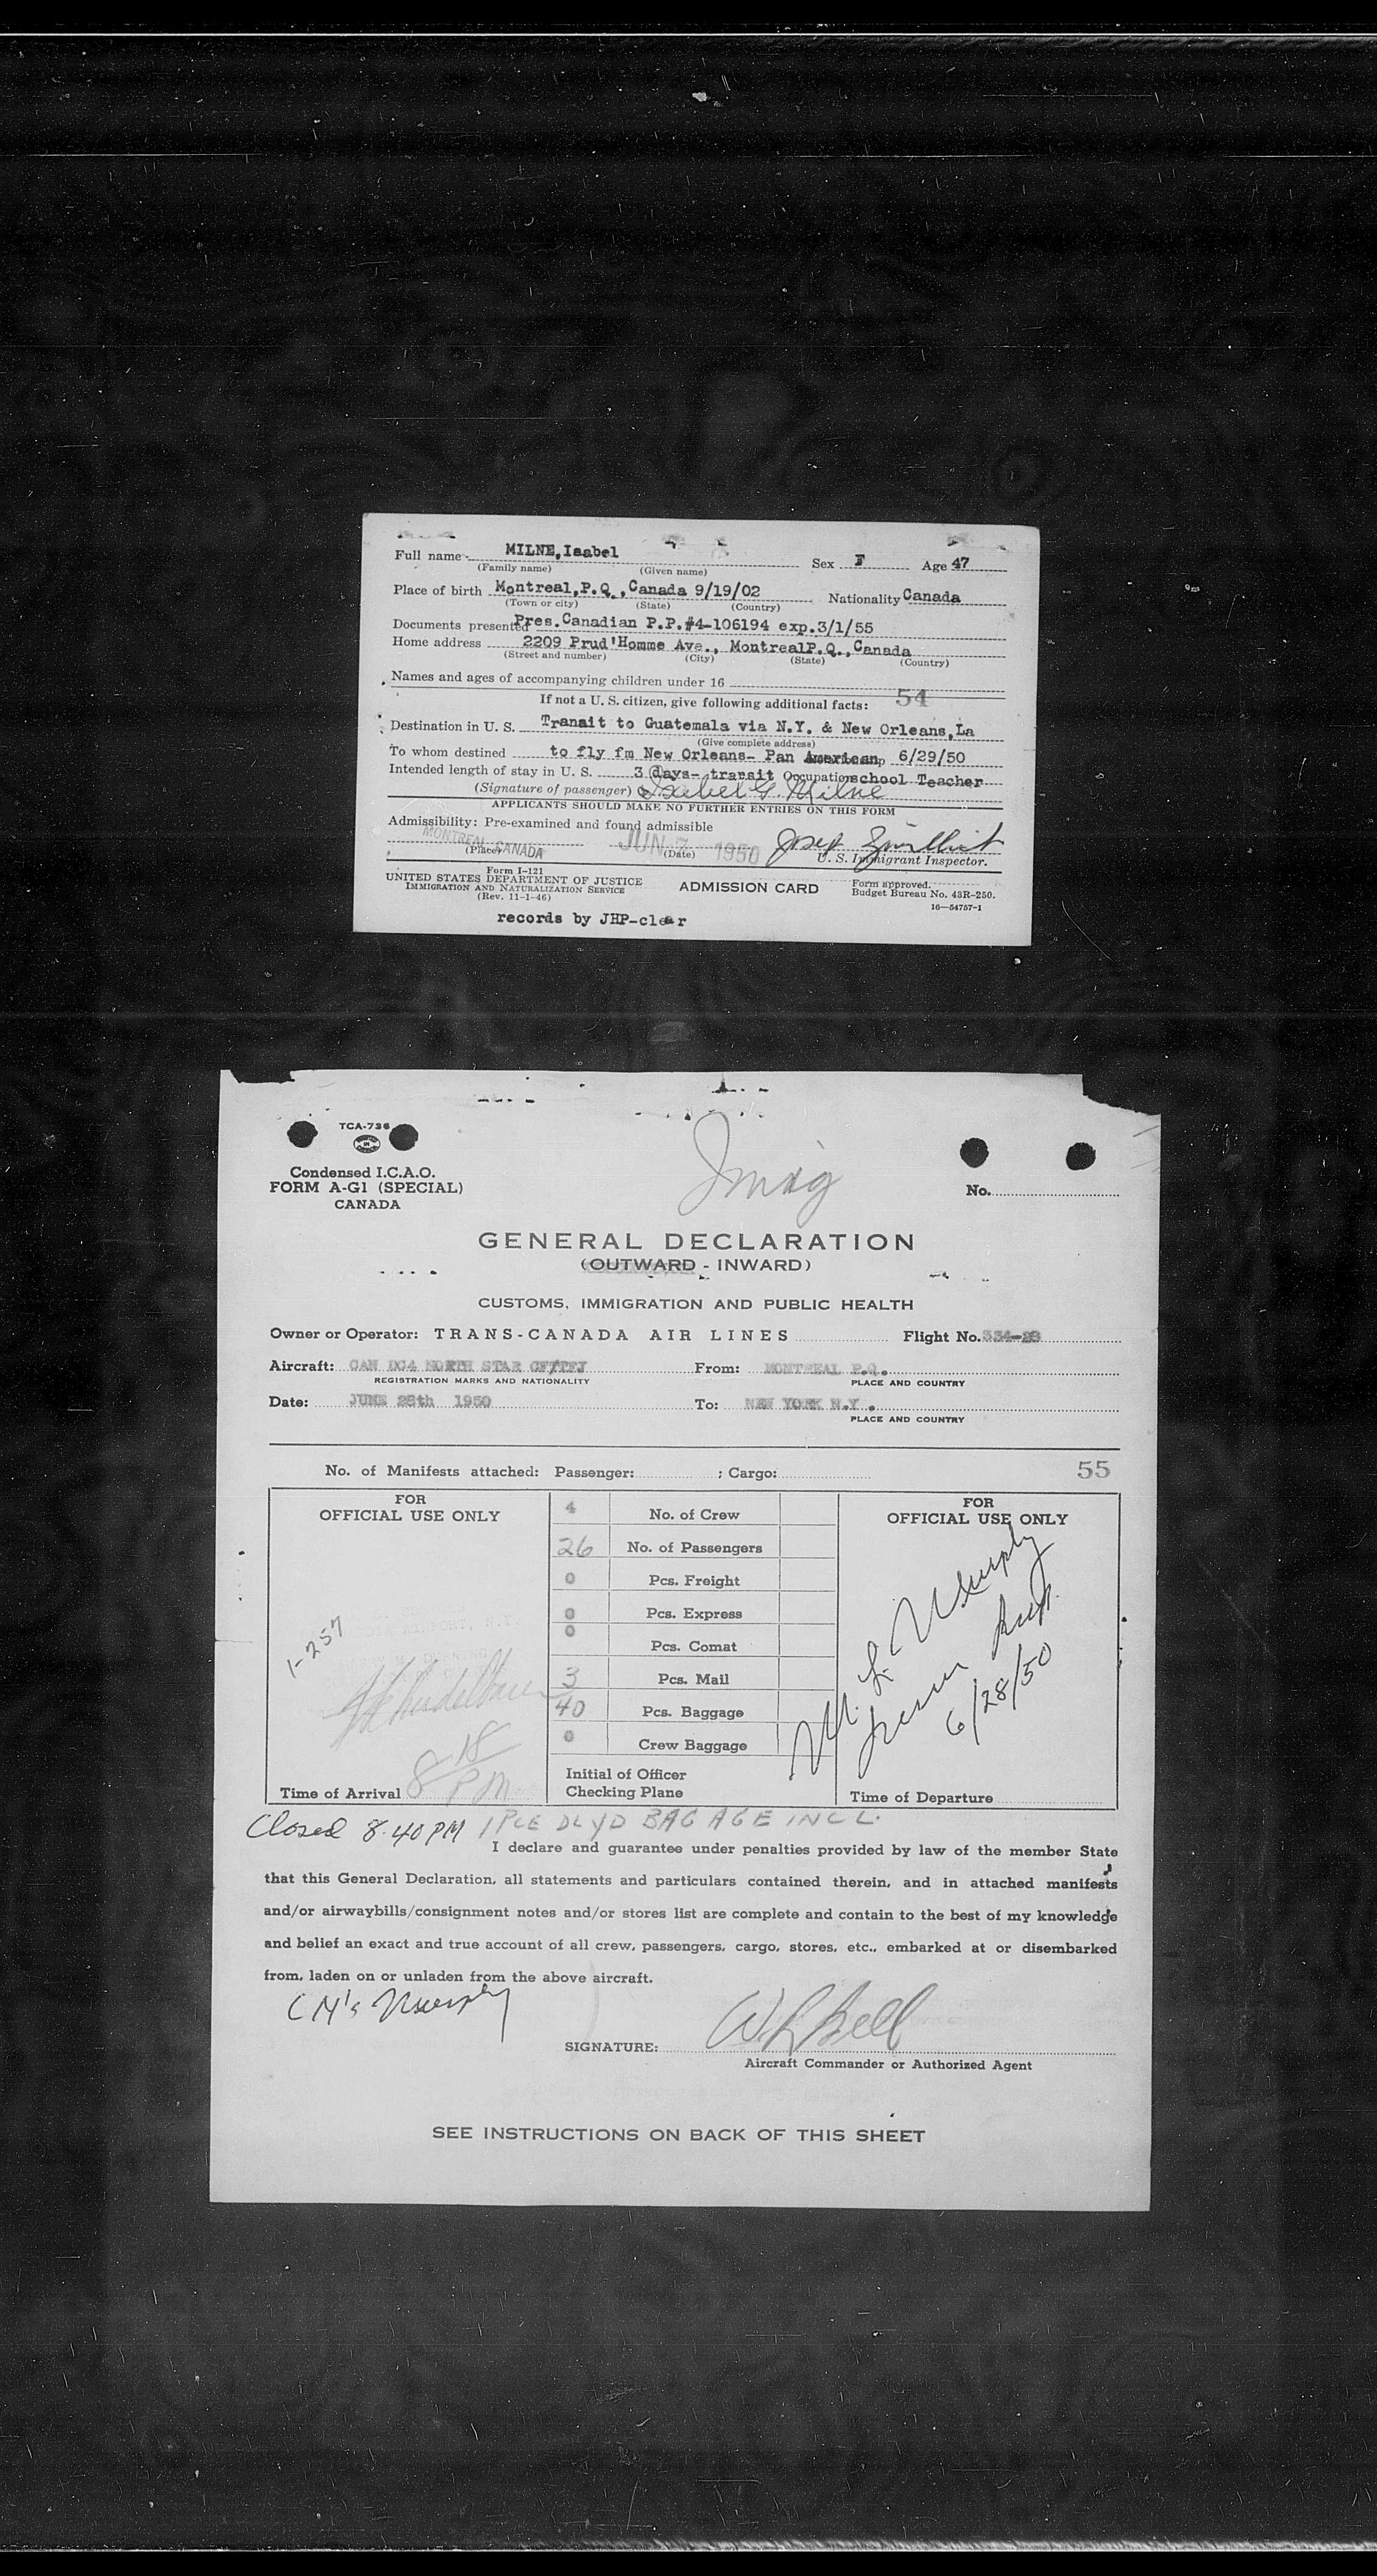 Full name MILNE, Isabel Sex F Age 47
(Family name) (Given name)
Place of birth Montreal, P.Q., Canada 9/19/02 Nationality Canada
(Town or city) (State) (Country)
Documents presented Pres. Canadian P.P.#4-106194 exp.3/1/55
Home address 2209 Prud'Homme Ave., MontrealP.Q., Canada
(Street and number) (City) (State) (Country)
Names and ages of accompanying children under 16
If not a U. S. citizen, give following additional facts: 54
Destination in U. S. Transit to Guatemala via N.Y. & New Orleans, La
(Give complete address)
To whom destined to fly fm New Orleans- Pan American 6/29/50
Intended length of stay in U. S. 3 days- transit Occupation school Teacher
(Signature of passenger) Isabel G. Milne
APPLICANTS SHOULD MAKE NO FURTHER ENTRIES ON THIS FORM
Admissibility: Pre-examined and found admissible
MONTREAL CANADA JUN 7 1950
(Place) (Date) U. S. Immigrant Inspector.
Form I-121
UNITED STATES DEPARTMENT OF JUSTICE
IMMIGRATION AND NATURALIZATION SERVICE
(Rev. 11-1-46)
ADMISSION CARD
Form approved.
Budget Bureau No. 43R-250.
16—54757-1
records by JHP-clear
TCA-736
Condensed I.C.A.O.
FORM A-G1 (SPECIAL)
CANADA
Imig
No.
GENERAL DECLARATION
(OUTWARD - INWARD)
CUSTOMS, IMMIGRATION AND PUBLIC HEALTH
Owner or Operator: TRANS-CANADA AIR LINES Flight No. 334-28
Aircraft: CAN DC4 NORTH STAR CF/TFJ From: MONTREAL P.Q.
REGISTRATION MARKS AND NATIONALITY PLACE AND COUNTRY
Date: JUNE 28th 1950 To: NEW YORK N.Y.
PLACE AND COUNTRY
No. of Manifests attached: Passenger: ; Cargo: 55
FOR
OFFICIAL USE ONLY
1-257
Time of Arrival 8 18 PM
4 No. of Crew
26 No. of Passengers
0 Pcs. Freight
0 Pcs. Express
0 Pcs. Comat
3 Pcs. Mail
40 Pcs. Baggage
0 Crew Baggage
Initial of Officer
Checking Plane
FOR
OFFICIAL USE ONLY
M. L. Murphy
6/28/50
Time of Departure
Closed 8.40 PM 1 PCE DLYD BAGAGE INCL.
I declare and guarantee under penalties provided by law of the member State
that this General Declaration, all statements and particulars contained therein, and in attached manifests
and/or airwaybills/consignment notes and/or stores list are complete and contain to the best of my knowledge
and belief an exact and true account of all crew, passengers, cargo, stores, etc., embarked at or disembarked
from, laden on or unladen from the above aircraft.
Murphy
SIGNATURE: W L Bell
Aircraft Commander or Authorized Agent
SEE INSTRUCTIONS ON BACK OF THIS SHEET